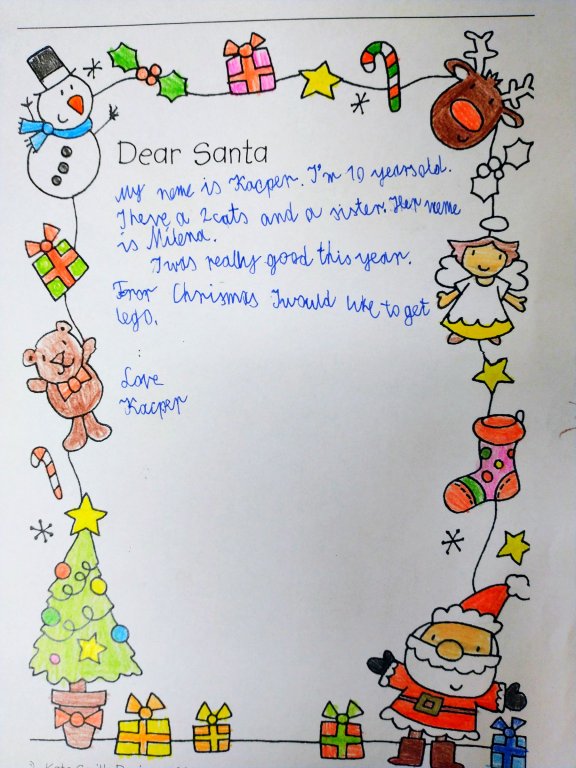 Dear Santa
My name is Kacper. I'm 10 years old.
I have a 2 cats and a sister. Her name
is Milena.
I was really good this year.
Fror Chrismas I would like to get
lego.
Love
Kacper